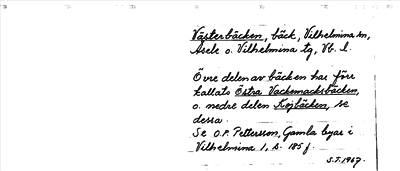 Västerbäcken, bäck, Vilhelmina sn,
Åsele o. Vilhelmina tg, Vb. l.
Övre delen av bäcken har förr
kallats Östra Vackermacksbäcken,
o. nedre delen Kojbäcken, se
dessa.
Se O.P. Pettersson, Gamla byar i
Vilhelmina 1, s. 185 f.
S.T. 1967.